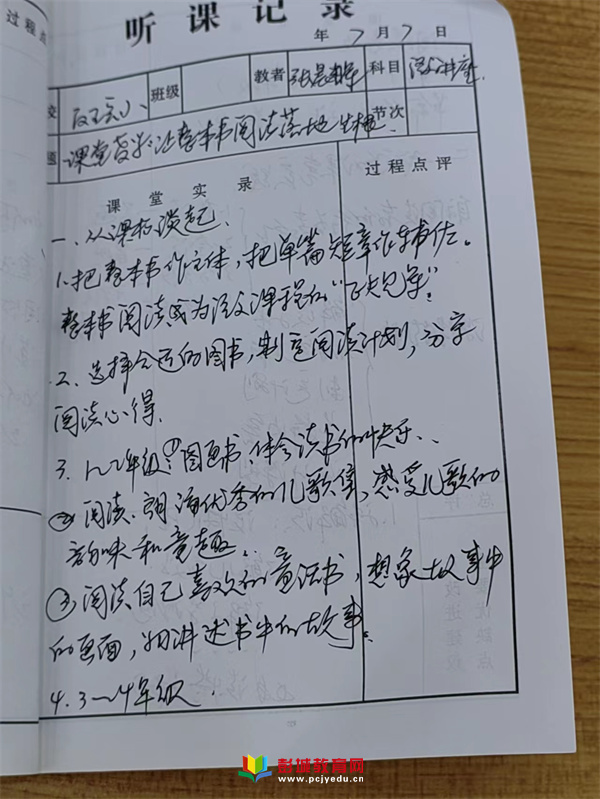 听课记录
年7月7日
校 班级 教者 科目
题 课堂 让整本书阅读落地生根 节次
课堂实录 过程点评
一、从课标谈起、
1.把整本书作主体,把单篇短章作辅佐。
整本书阅读成为语文课程的“正规军”
2、选择合适的图书,制定阅读计划,分享
阅读心得.
3.1~2年级:①图画书,体会读书的快乐、、
② 阅读、朗诵优秀的儿歌集,感受儿歌的
韵味和童趣、、
③阅读自己喜欢的童话书,想象故事中
的画面,讲述书中的故事。
4.3~4年级、
过程点
彭城教育网
www.pcjyedu.cn